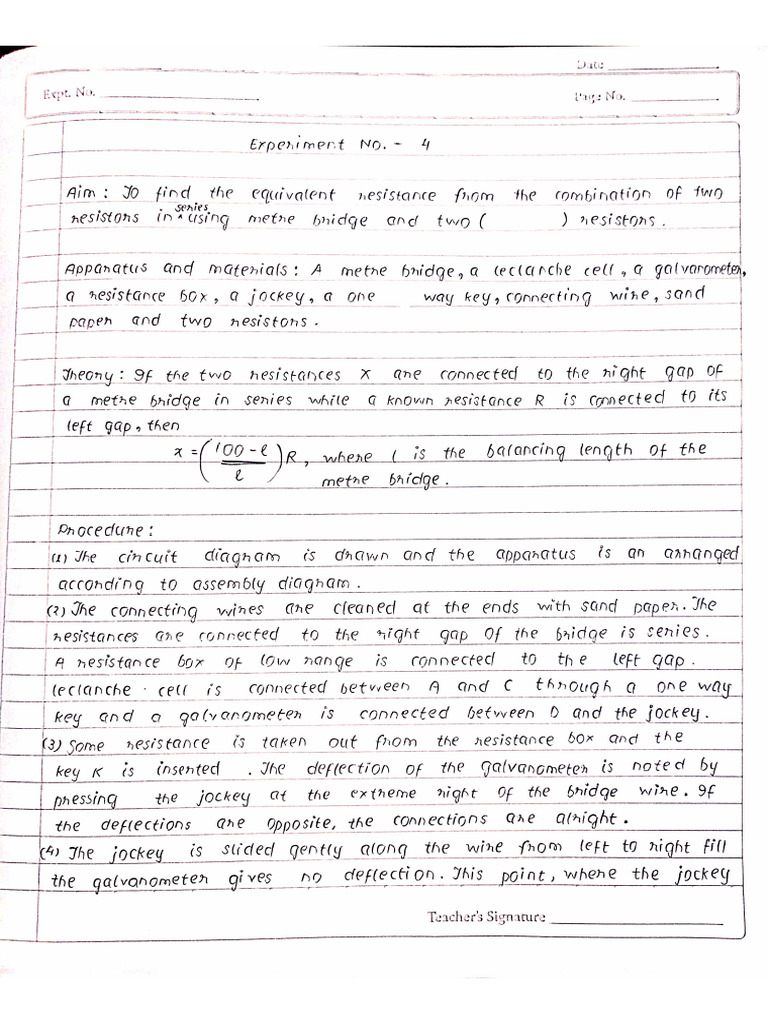 Date
Expt. No.
Page No.
Experiment No. - 4
Aim : To find the equivalent resistance from the combination of two
resistors in series using metre bridge and two ( ) resistors.
Apparatus and materials : A metre bridge, a leclanche cell, a galvanometer,
a resistance box, a jockey, a one way key, connecting wire, sand
paper and two resistors.
Theory : If the two resistances X are connected to the right gap of
a metre bridge in series while a known resistance R is connected to its
left gap, then
x = (100-l / l) R, where l is the balancing length of the
metre bridge.
Procedure :
(1) The circuit diagram is drawn and the apparatus is an arranged
according to assembly diagram.
(2) The connecting wires are cleaned at the ends with sand paper. The
resistances are connected to the right gap of the bridge is series.
A resistance box of low range is connected to the left gap.
leclanche cell is connected between A and C through a one way
key and a galvanometer is connected between D and the jockey.
(3) Some resistance is taken out from the resistance box and the
key K is inserted . The deflection of the galvanometer is noted by
pressing the jockey at the extreme right of the bridge wire. If
the deflections are opposite, the connections are alright.
(4) The jockey is slided gently along the wire from left to right fill
the galvanometer gives no deflection. This point, where the jockey
Teacher's Signature